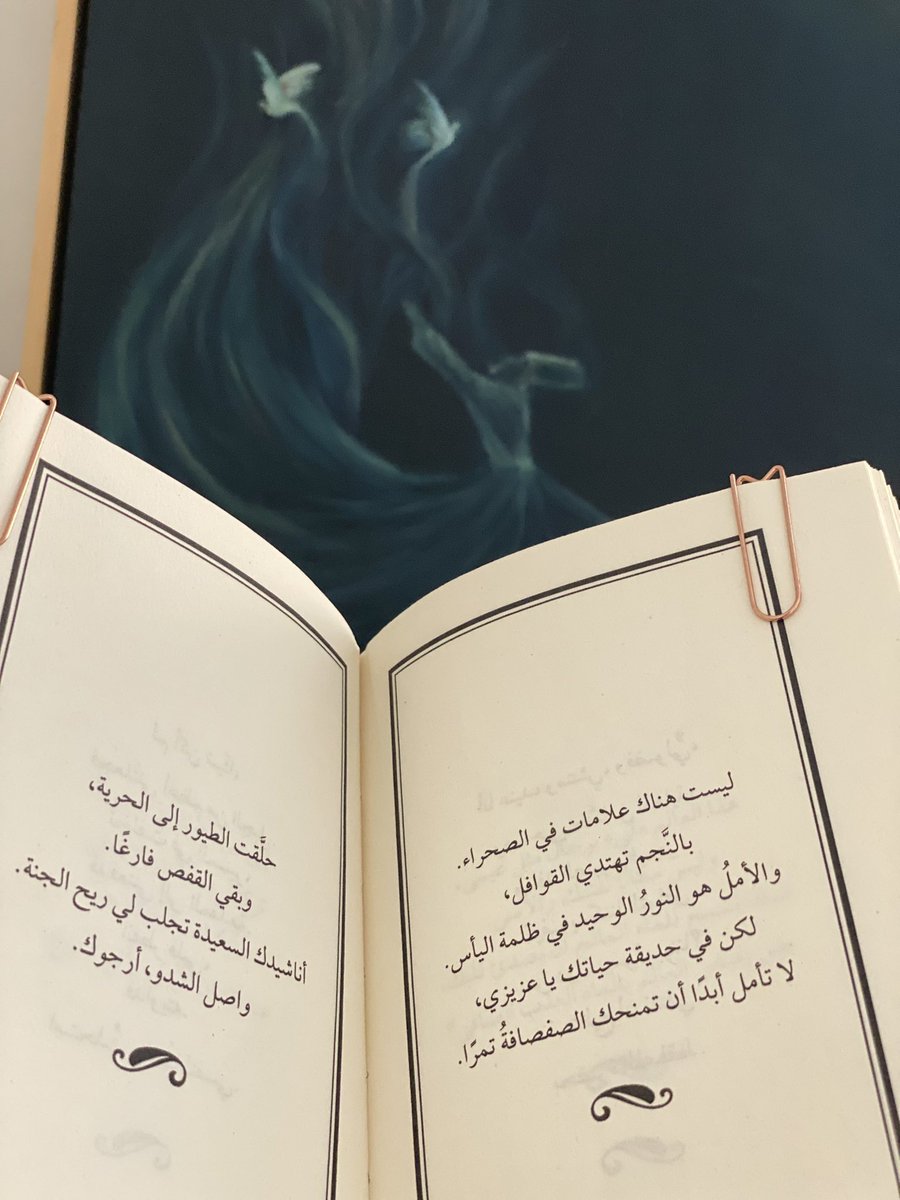 ليست هناك علامات في الصحراء.
بالنَّجم تهتدي القوافل،
والأملُ هو النورُ الوحيد في ظلمة اليأس.
لكن في حديقة حياتك يا عزيزي،
لا تأمل أبدًا أن تمنحك الصفصافةُ تمرًا.
حلَّقت الطيور إلى الحرية،
وبقي القفص فارغًا.
أناشيدك السعيدة تجلب لي ريح الجنة.
واصل الشدو، أرجوك.